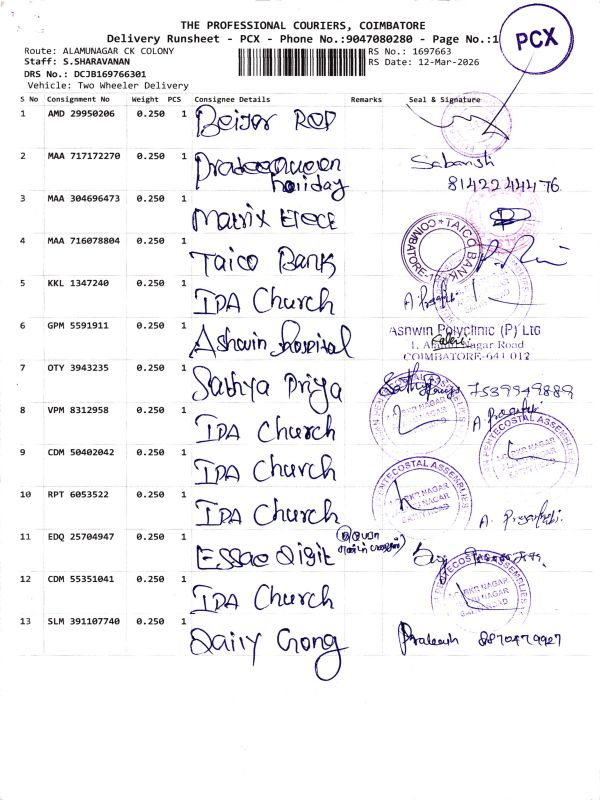 THE PROFESSIONAL COURIERS, COIMBATORE
Delivery Runsheet - PCX - Phone No.:9047080280 - Page No.:1
PCX
Route: ALAMUNAGAR CK COLONY
RS No.: 1697663
Staff: S.SHARAVANAN
RS Date: 12-Mar-2026
DRS No.: DCJB169766301
Vehicle: Two Wheeler Delivery
S No Consignment No Weight PCS Consignee Details Remarks Seal & Signature
1 AMD 29950206 0.250 1
2 MAA 717172270 0.250 1 holiday
8142244476
3 MAA 304696473 0.250 1 Matrix
4 MAA 716078804 0.250 1 Taico Bank
TAICO BANK
COIMBATORE
5 KKL 1347240 0.250 1 IPA Church
6 GPM 5591911 0.250 1 Ashwin Hospital
Ashwin Polyclinic (P) Ltd
1, Alamu Nagar Road
COIMBATORE-641 012
7 OTY 3943235 0.250 1 Sathya Priya
7539949889
8 VPM 8312958 0.250 1 IPA Church
9 CDM 50402042 0.250 1 IPA Church
PENTECOSTAL ASSEMBLIES
10 RPT 6053522 0.250 1 IPA Church
PENTECOSTAL ASSEMBLIES
11 EDQ 25704947 0.250 1
12 CDM 55351041 0.250 1 IPA Church
PENTECOSTAL ASSEMBLIES
13 SLM 391107740 0.250 1 Dairy
Prakash